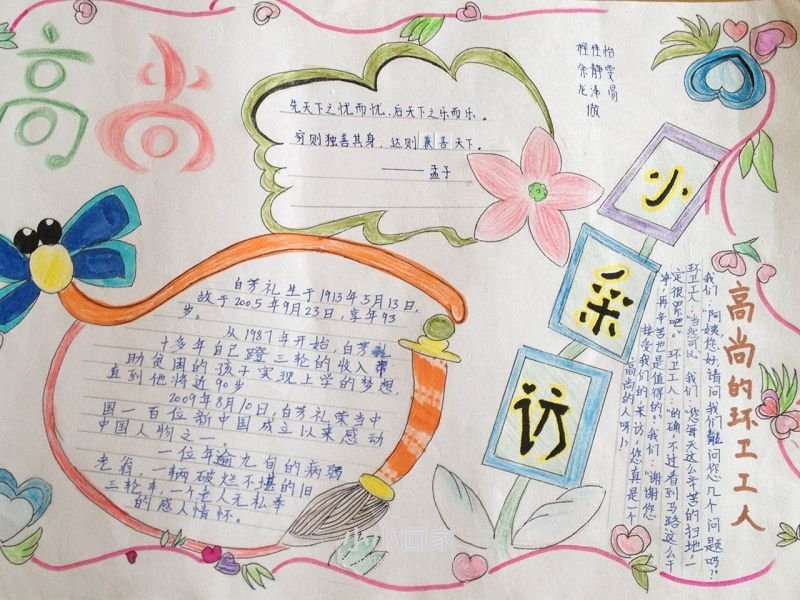 高尚
先天下之忧而忧，后天下之乐而乐。
穷则独善其身，达则兼善天下。
——孟子
程佳怡
余静雯
龙泽
做
小采访
白芳礼生于1913年5月13日，
故于2005年9月23日，享年93
岁。
从1987年开始，白芳礼
十多年自己蹬三轮的收入帮
助贫困的孩子实现上学的梦想，
直到他将近90岁
2009年8月10日，白芳礼荣当中
国一百位新中国成立以来感动
中国人物之一。
一位年逾九旬的病弱
老翁，一辆破烂不堪的旧
三轮车，一个老人无私奉
的感人情怀。
高尚的环卫工人
我们：“阿姨您好请问我们能问您几个问题吗？”
环卫工人：“当然可以”我们：“您每天这么辛苦的扫地，一
定很累吧。”环卫工人：“的确，不过看到马路这么干
净，再辛苦也是值得的。”我们：“谢谢您
接受我们的采访，您真是一个
高尚的人呀！”